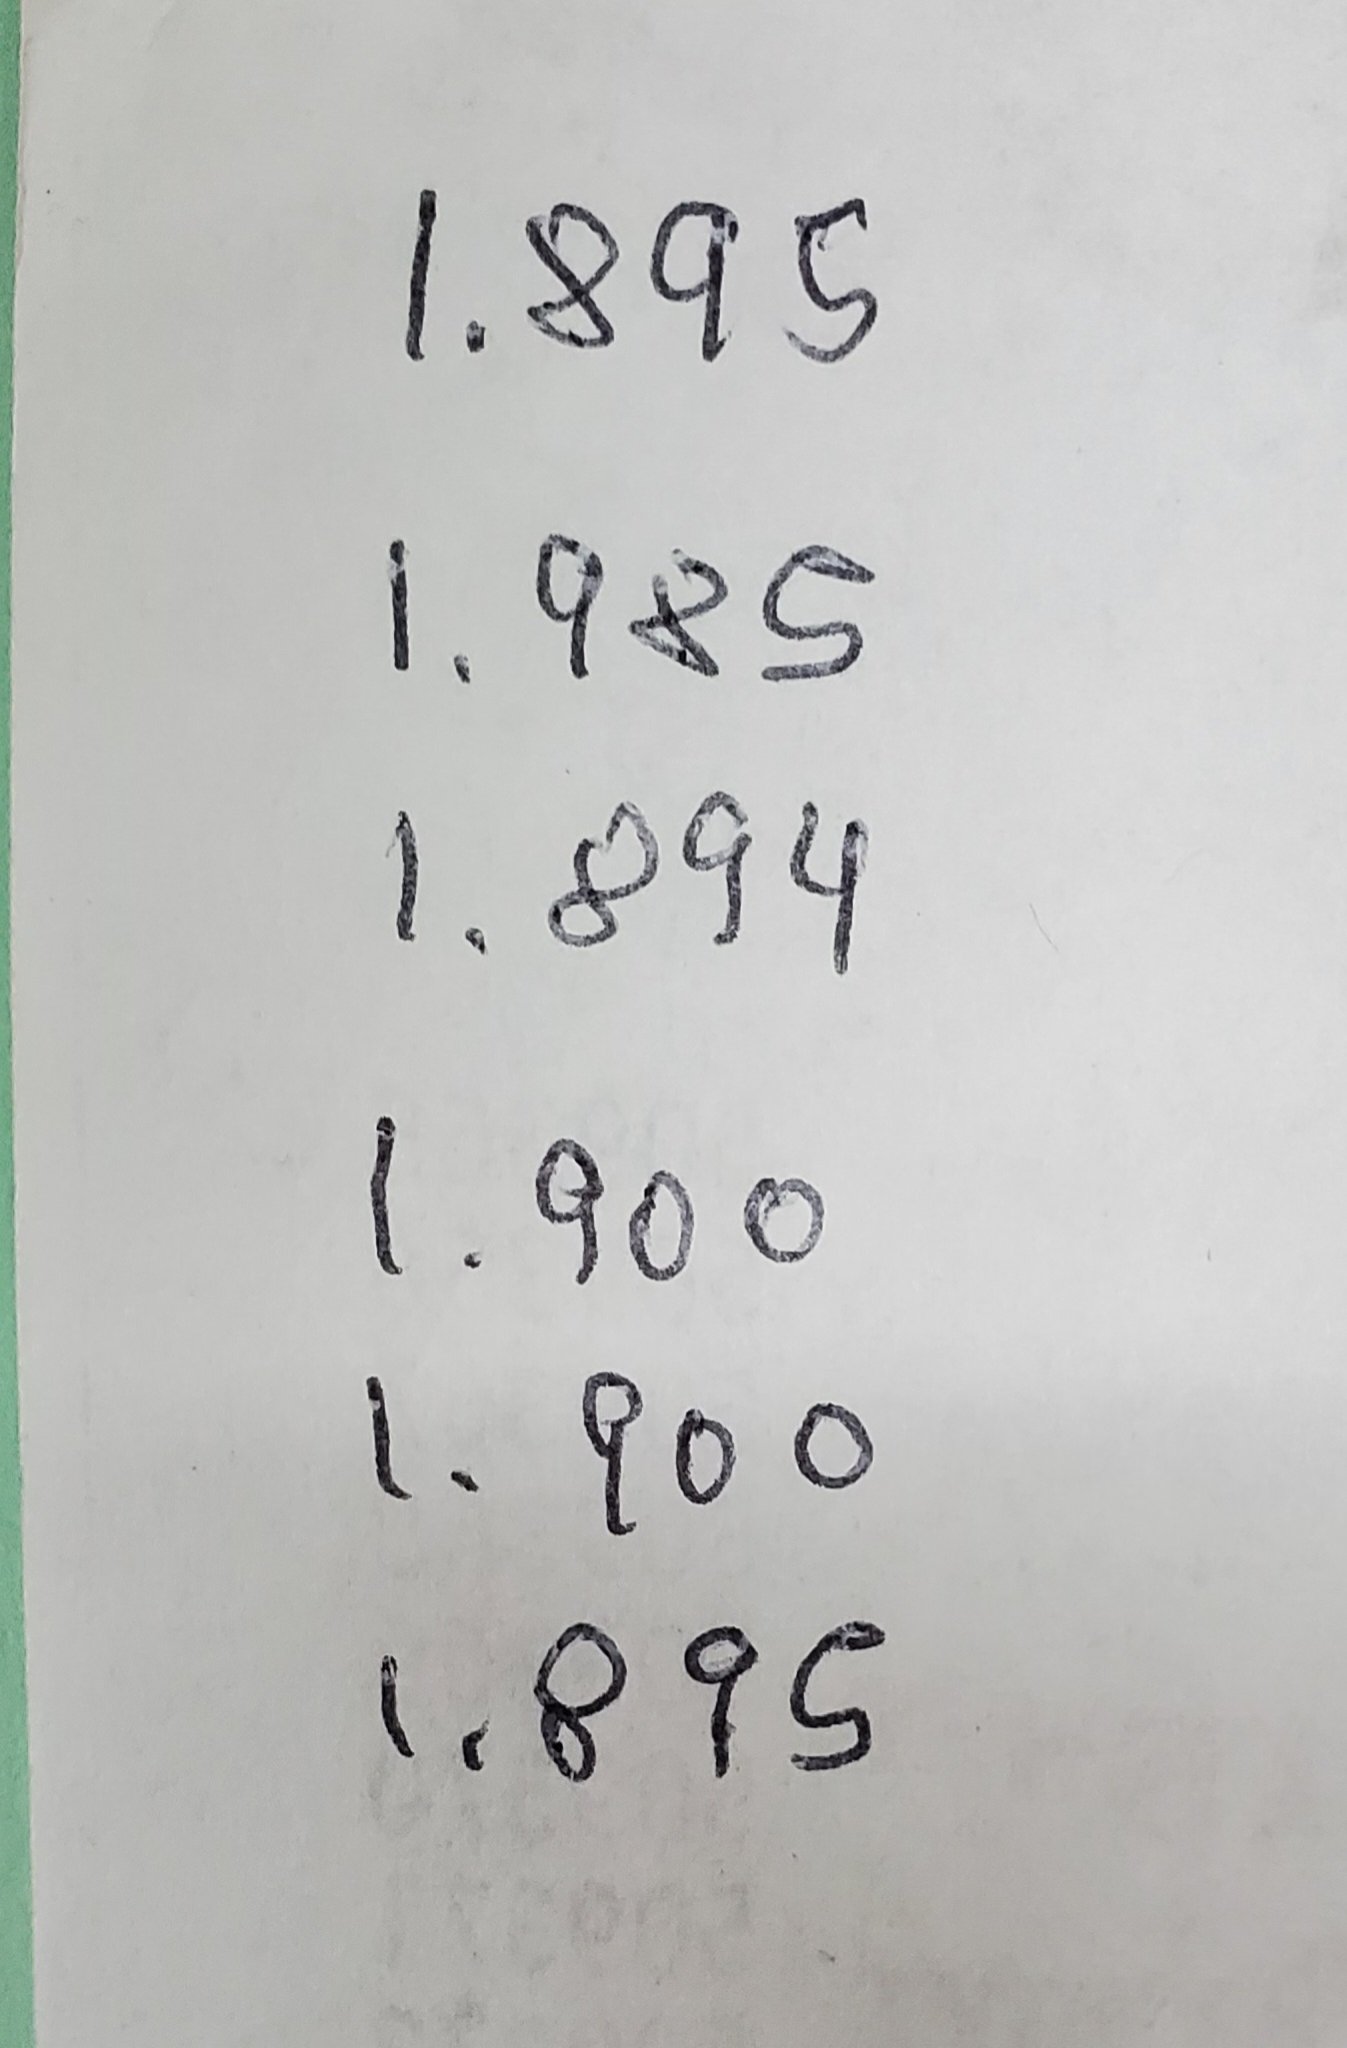 1.895
1.985
1.894
1.900
1.900
1.895